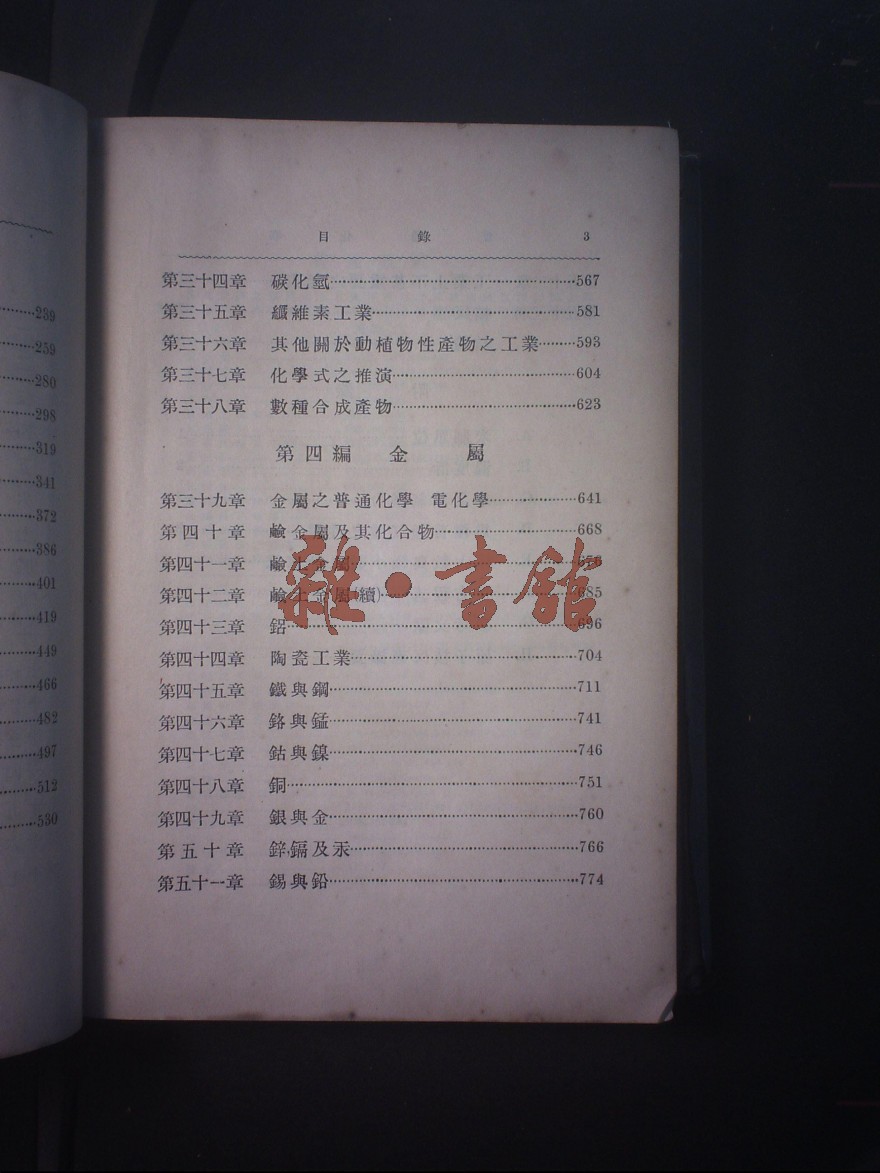 239
259
280
298
319
341
372
386
401
419
449
466
482
497
512
530
目 錄 3
第三十四章 碳化氫 567
第三十五章 纖維素工業 581
第三十六章 其他關於動植物性產物之工業 593
第三十七章 化學式之推演 604
第三十八章 數種合成產物 623
第四編 金屬
第三十九章 金屬之普通化學 電化學 641
第四十章 鹼金屬及其化合物 668
第四十一章 鹼土金屬
第四十二章 鹼土金屬(續) 685
第四十三章 鋁 696
第四十四章 陶瓷工業 704
第四十五章 鐵與鋼 711
第四十六章 鉻與錳 741
第四十七章 鈷與鎳 746
第四十八章 銅 751
第四十九章 銀與金 760
第五十章 鋅,鎘及汞 766
第五十一章 錫與鉛 774
雜·書館